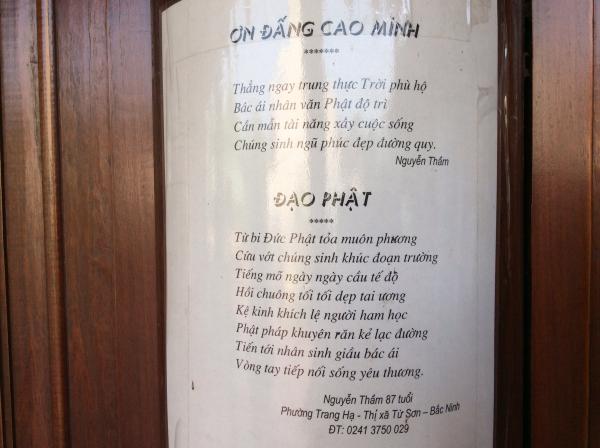 ƠN ĐẤNG CAO MINH
*******
Thẳng ngay trung thực Trời phù hộ
Bác ái nhân văn Phật độ trì
Cần mẫn tài năng xây cuộc sống
Chúng sinh ngũ phúc đẹp đường quy.
Nguyễn Thầm
ĐẠO PHẬT
*****
Từ bi Đức Phật tỏa muôn phương
Cứu vớt chúng sinh khúc đoạn trường
Tiếng mõ ngày ngày cầu tế độ
Hồi chuông tối tối dẹp tai ương
Kệ kinh khích lệ người ham học
Phật pháp khuyên răn kẻ lạc đường
Tiến tới nhân sinh giầu bác ái
Vòng tay tiếp nối sống yêu thương.
Nguyễn Thầm 87 tuổi
Phường Trang Hạ - Thị xã Từ Sơn – Bắc Ninh
ĐT: 0241 3750 029